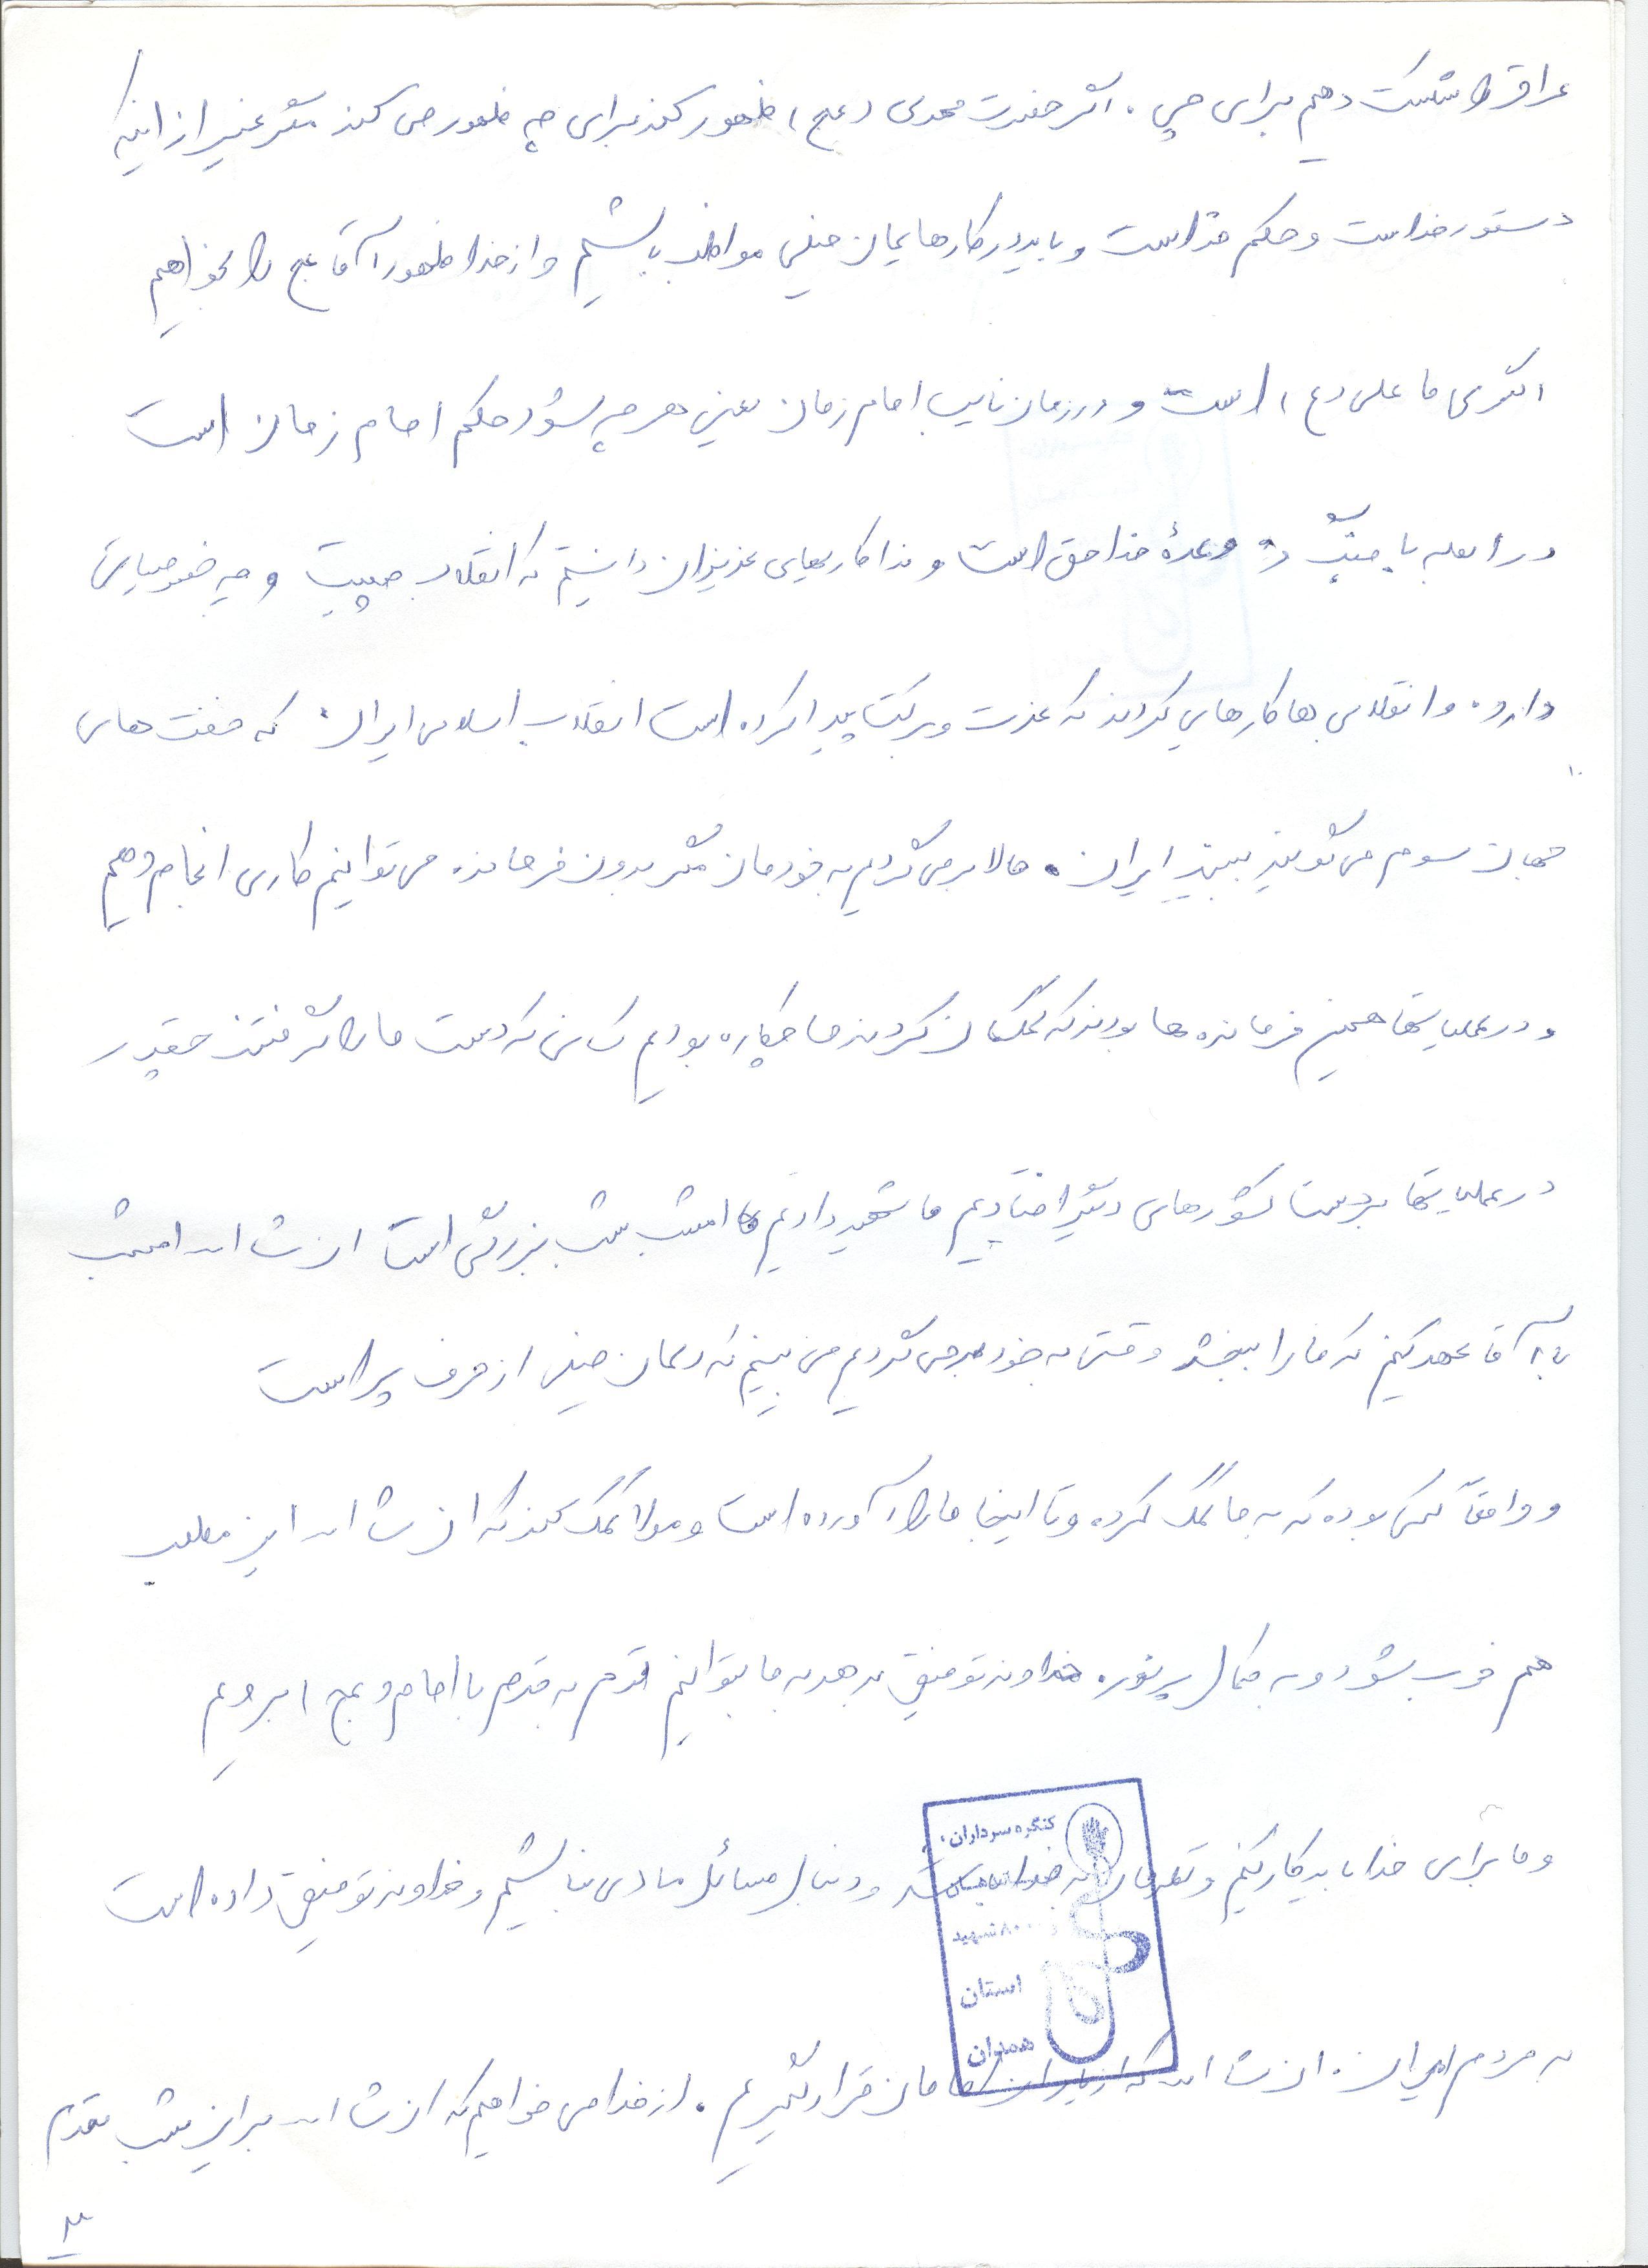 عراق را شکست دهیم برای چی . اگر حضرت مهدی (عج) ظهور کند برای چه ظهور می کند مگر غیر از اینکه
دستور خداست و حکم خداست و باید در کارهایمان خیلی مواظب باشیم و از خدا ظهور آقا عج را بخواهیم
الگوی ما علی (ع) است و در زمان نایب امام زمان یعنی هر چه بشود حکم امام زمان است
در رابطه با جنگ وعدهٔ خدا حق است و فداکاریهای عزیزان دانستیم که انقلاب چیست و چه خصوصیاتی
دارد . و انقلابی ها کارهایی کردند که عزت و برکت پیدا کرده است انقلاب اسلامی ایران که ملت های
جهان سوم می گویند ببینید ایران . حالا بر می گردیم به خودمان مگر بدون فرمانده می توانیم کاری انجام دهیم
و در عملیاتها همین فرمانده ها بودند که کمکمان کردند ما چکاره بودیم کسانی که دست ما را گرفتند چقدر
در عملیاتها بدست کشورهای دیگر افتادیم ما شهید دادیم امشب شب بزرگی است ان شاء اله امشب
با آقا عهد کنیم که ما را ببخشد وقتی به خود بر می گردیم می بینیم که دلمان خیلی از حرف پر است
و واقعاً کسی بوده که به ما کمک کرده و تا اینجا ما را آورده است و مولا کمک کند که ان شاء اله این مطلب
هم خوب بشود و به کمال برسد . خداوند توفیق بدهد به ما بتوانیم قدم به قدم با امام (عج) برویم
و ما برای خدا باید کار کنیم و توکلمان به خدا باشد و دنبال مسائل مادی نباشیم و خداوند توفیق داده است
به مردم ایران . ان شاء اله که از یاران امام زمان قرار بگیریم . از خدا می خواهیم که ان شاء اله بر این شب مقدم
کنگره سرداران
۸۰۰۰ شهید
استان
همدان